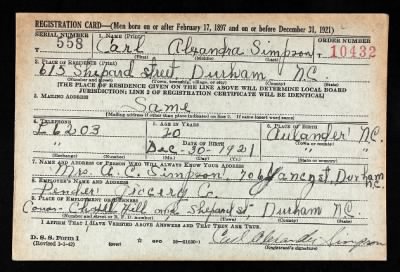 REGISTRATION CARD—(Men born on or after February 17, 1897 and on or before December 31, 1921)
SERIAL NUMBER 1. NAME (Print) ORDER NUMBER
T 558 Carl Alexandra Simpson T 10432
(First) (Middle) (Last)
2. PLACE OF RESIDENCE (Print)
613 Shepard street, Durham N.C.
(Number and street) (Town, township, village, or city) (County) (State)
[THE PLACE OF RESIDENCE GIVEN ON THE LINE ABOVE WILL DETERMINE LOCAL BOARD
JURISDICTION; LINE 2 OF REGISTRATION CERTIFICATE WILL BE IDENTICAL]
3. MAILING ADDRESS
Same
[Mailing address if other than place indicated on line 2. If same insert word same]
4. TELEPHONE 5. AGE IN YEARS 6. PLACE OF BIRTH
L 6203 20 Aulander
DATE OF BIRTH (Town or county)
Dec - 30 - 1921 N.C.
(Exchange) (Number) (Mo.) (Day) (Yr.) (State or country)
7. NAME AND ADDRESS OF PERSON WHO WILL ALWAYS KNOW YOUR ADDRESS
Mrs. A. C. Simpson, 706 Yancy st. Durham N.C.
8. EMPLOYER'S NAME AND ADDRESS
Pender Co.
9. PLACE OF EMPLOYMENT OR BUSINESS
Chapel Hill Shepard st Durham N.C.
(Number and street or R. F. D. number) (Town) (County) (State)
I AFFIRM THAT I HAVE VERIFIED ABOVE ANSWERS AND THAT THEY ARE TRUE.
D. S. S. Form 1
(Revised 1-1-42) GPO 16—21630-1 Carl Alexander Simpson
(Registrant's signature)